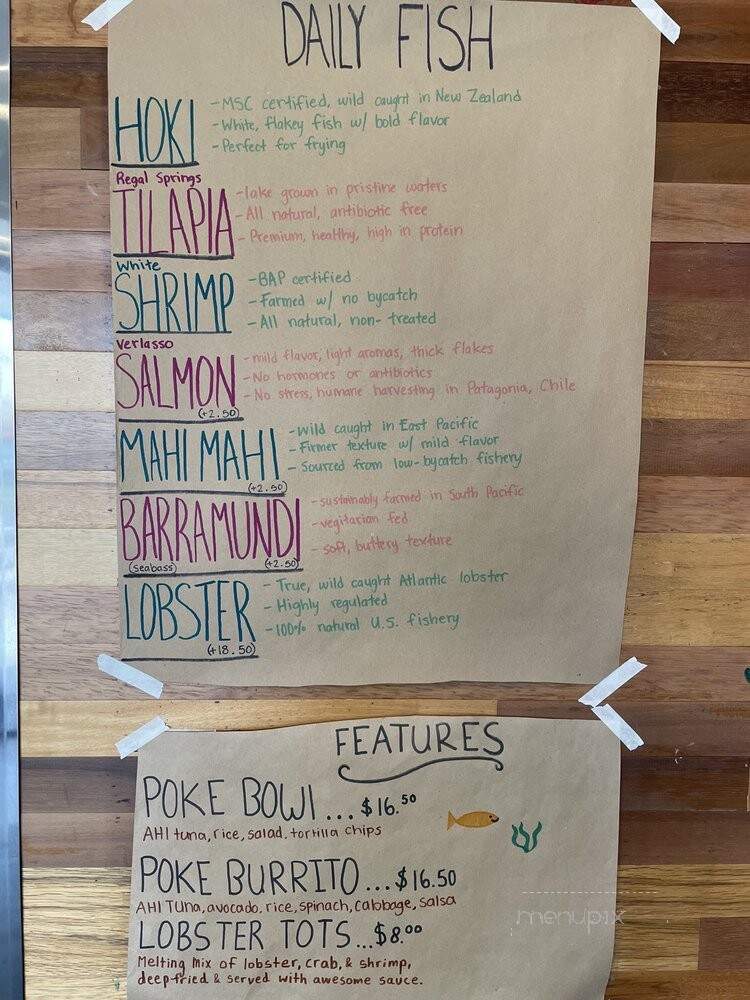 DAILY FISH
HOKI
- MSC certified, wild caught in New Zealand
- White, flakey fish w/ bold flavor
- Perfect for frying
Regal Springs
TILAPIA
- lake grown in pristine waters
- All natural, antibiotic free
- Premium, healthy, high in protein
White
SHRIMP
- BAP certified
- Farmed w/ no bycatch
- All natural, non-treated
Verlasso
SALMON
(+2.50)
- mild flavor, light aromas, thick flakes
- No hormones or antibiotics
- No stress, humane harvesting in Patagonia, Chile
MAHI MAHI
(+2.50)
- Wild caught in East Pacific
- Firmer texture w/ mild flavor
- Sourced from low-bycatch fishery
BARRAMUNDI
(seabass) (+2.50)
- sustainably farmed in South Pacific
- vegitarian fed
- soft, buttery texture
LOBSTER
(+18.50)
- True, wild caught Atlantic lobster
- Highly regulated
- 100% natural U.S. fishery
FEATURES
POKE BOWl ... $16.50
AHI tuna, rice, salad, tortilla chips
POKE BURRITO ... $16.50
AHI Tuna, avocado, rice, spinach, cabbage, salsa
LOBSTER TOTS ... $8.00
Melting mix of lobster, crab, & shrimp,
deep-fried & served with awesome sauce.
menupix